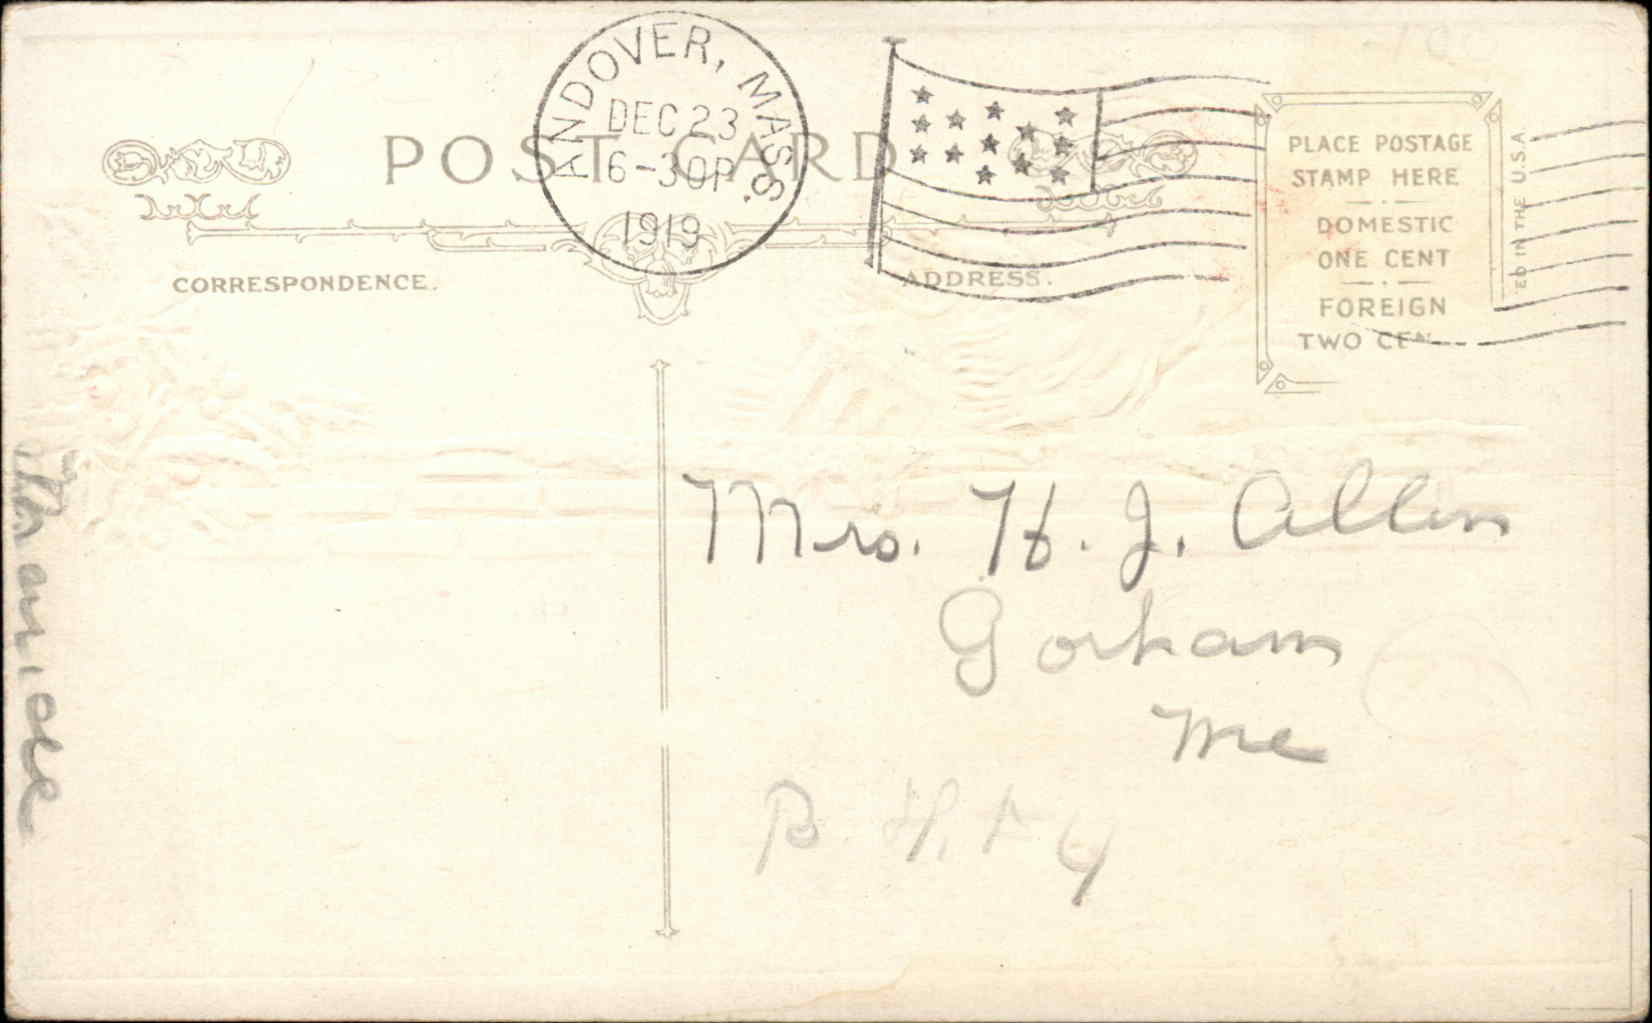 ANDOVER, MASS.
DEC 23
6-30P
1919
POST CARD
CORRESPONDENCE.
ADDRESS.
PLACE POSTAGE
STAMP HERE
DOMESTIC
ONE CENT
FOREIGN
TWO CEN
ED IN THE U.S.A.
Mrs. H. J. Allen
Gorham
Me